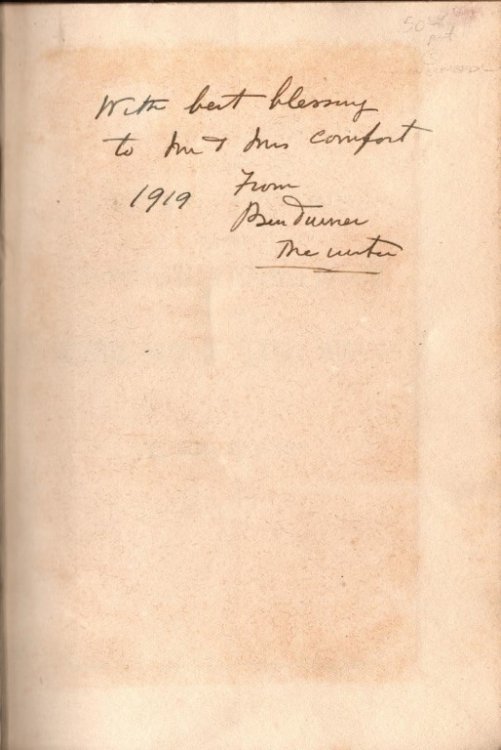 50
With best blessing
to Mr & Mrs Comfort
1919 From
Ben Turner
The writer